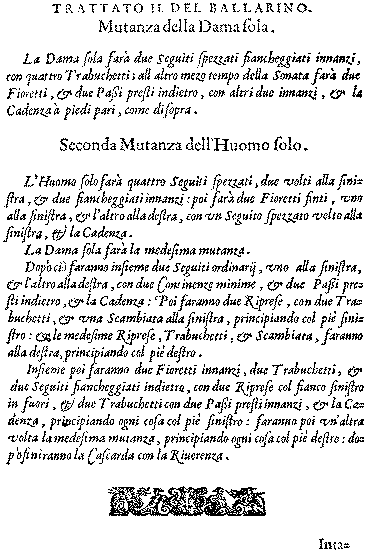 TRATTATO II. DEL BALLARINO.
Mutanza della Dama sola.
La Dama sola farà due Seguiti spezzati fiancheggiati innanzi,
con quattro Trabuchetti; all altro mezo tempo della Sonata farà due
Fioretti, & due Passi presti indietro, con altri due innanzi, & la
Cadenza à piedi pari, come disopra.
Seconda Mutanza dell'Huomo solo.
L'Huomo solo farà quattro Seguiti spezzati, due volti alla sini=
stra, & due fiancheggiati innanzi: poi farà due Fioretti finti, vno
alla sinistra, & l'altro alla destra, con vn Seguito spezzato volto alla
sinistra, & la Cadenza.
La Dama sola farà la medesima mutanza.
Dopò ciò faranno insieme due Seguiti ordinarij, vno alla sinistra,
& l'altro alla destra, con due Continenze minime, & due Passi pre=
sti indietro, & la Cadenza: Poi faranno due Riprese, con due Tra=
buchetti, & vna Scambiata alla sinistra, principiando col piè sini=
stro: & le medesime Riprese, Trabuchetti, & Scambiata, faranno
alla destra, principiando col piè destro.
Insieme poi faranno due Fioretti innanzi, due Trabuchetti, &
due Seguiti fiancheggiati indietro, con due Riprese col fianco sinistro
in fuori, & due Trabuchetti con due Passi presti innanzi, & la Ca=
denza, principiando ogni cosa col piè sinistro: faranno poi vn'altra
volta la medesima mutanza, principiando ogni cosa col piè destro: do=
pò finiranno la Cascarda con la Riuerenza.
Inta=